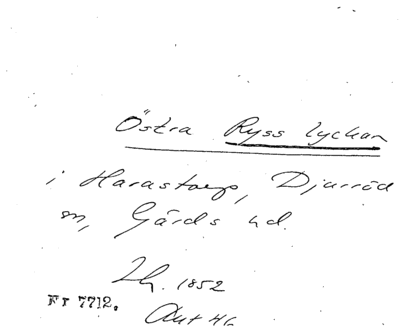 Östra Ryss lyckan
i Harastorp, Djurröd
sn, Gärds hd.
Lh. 1852
Fr 7712.
Akt 46